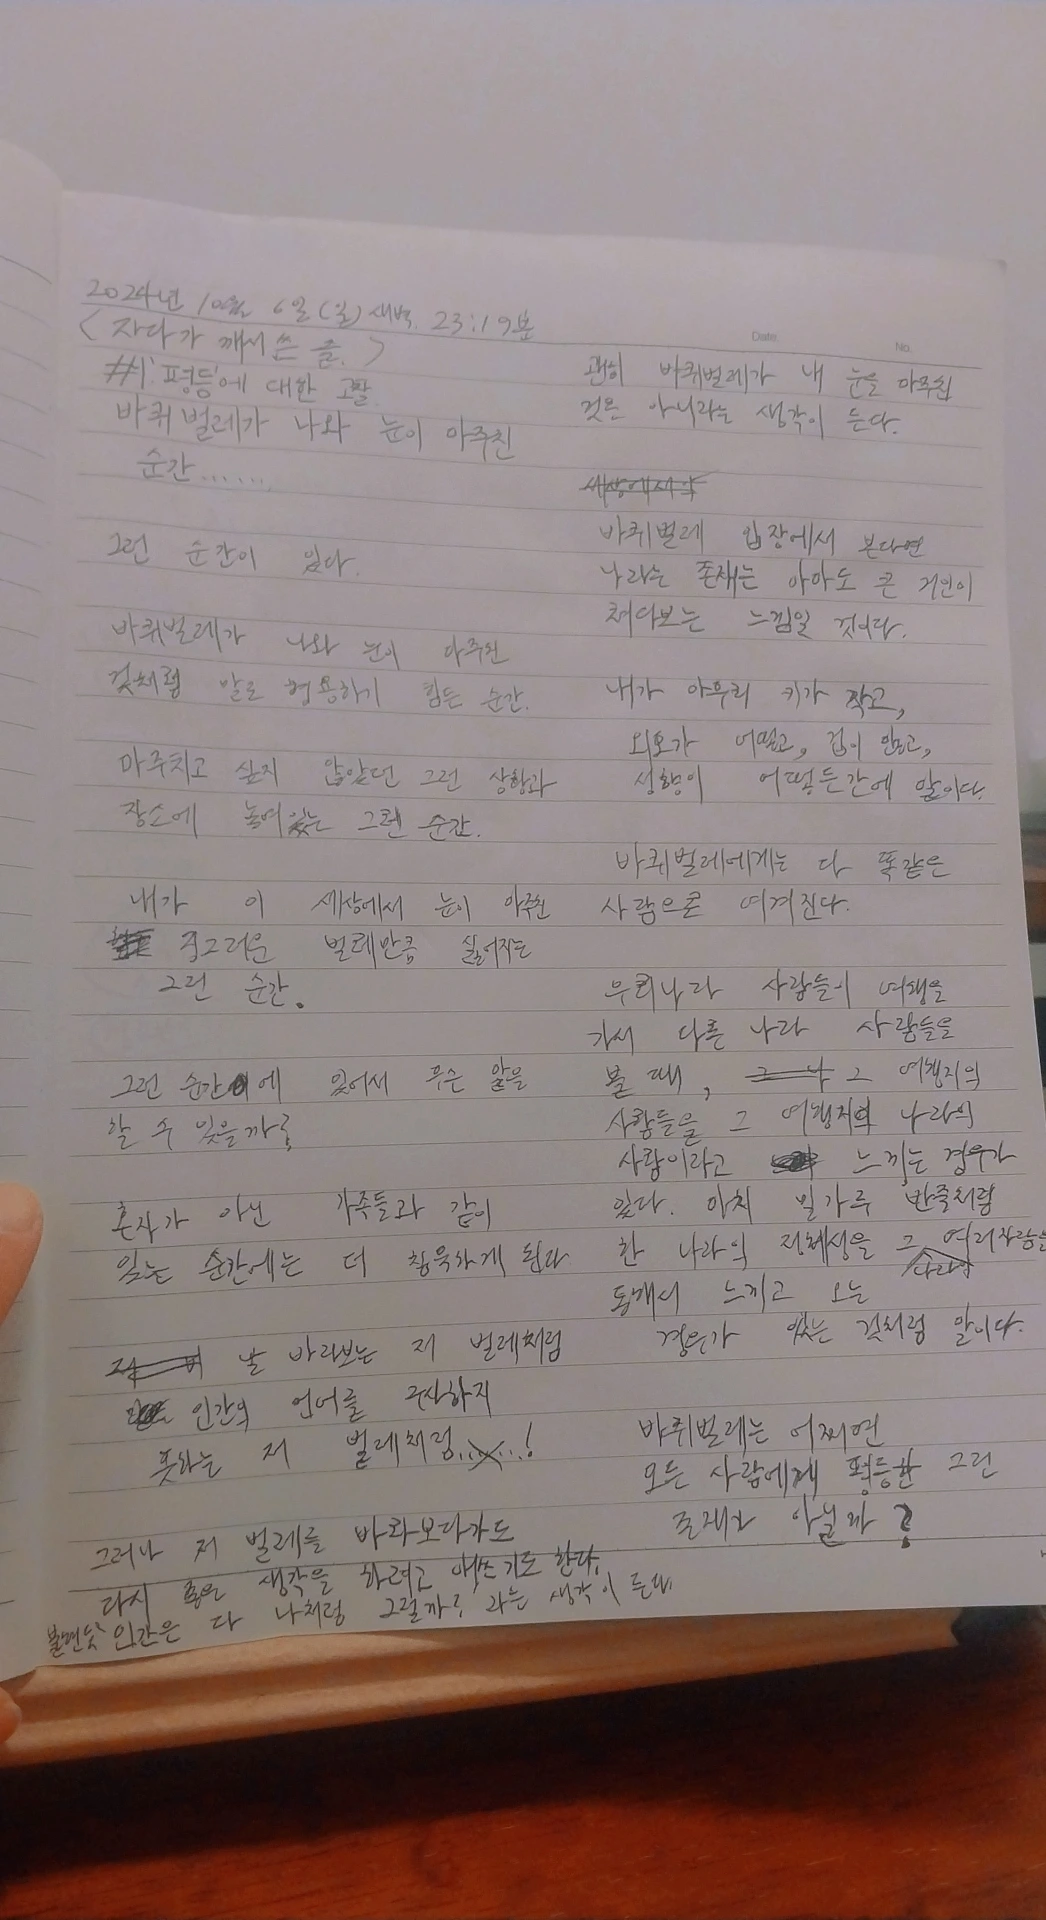 2024년 10월 6일(일) 새벽. 23:19분
<자다가 깨서 쓴 글.>
#1. '평등'에 대한 고찰
바퀴벌레가 나와 눈이 마주친
순간.......
그런 순간이 있다.
바퀴벌레가 나와 눈이 마주친
것처럼 말로 형용하기 힘든 순간.
마주치고 싶지 않았던 그런 상황과
장소에 놓여있는 그런 순간.
내가 이 세상에서 눈이 마주친
징그러운 벌레만큼 싫어지는
그런 순간.
그런 순간에 있어서 무슨 말을
할 수 있을까?
혼자가 아닌 가족들과 같이
있는 순간에는 더 침묵하게 된다
날 바라보는 저 벌레처럼
인간의 언어를 구사하지
못하는 저 벌레처럼......!
그러나 저 벌레를 바라보다가도
다시 좋은 생각을 하려고 애쓰기도 한다.
인간은 다 나처럼 그럴까? 라는 생각이 든다.
Date.
No.
괜히 바퀴벌레가 내 눈을 마주친
것은 아니라는 생각이 든다.
세상에서 약
바퀴벌레 입장에서 본다면
나라는 존재는 아마도 큰 거인이
쳐다보는 느낌일 것이다.
내가 아무리 키가 작고,
외모가 어떻고, 겁이 많고,
성향이 어떻든간에 말이다.
바퀴벌레에게는 다 똑같은
사람으로 여겨진다.
우리나라 사람들이 여행을
가서 다른 나라 사람들을
볼 때, 그 여행지의
사람들을 그 여행지의 나라의
사람이라고 느끼는 경우가
있다. 마치 밀가루 반죽처럼
한 나라의 정체성을 그 나라의 여러사람을
통해서 느끼고 오는
경우가 있는 것처럼 말이다.
바퀴벌레는 어찌면
모든 사람에게 평등한 그런
존재가 아닐까?